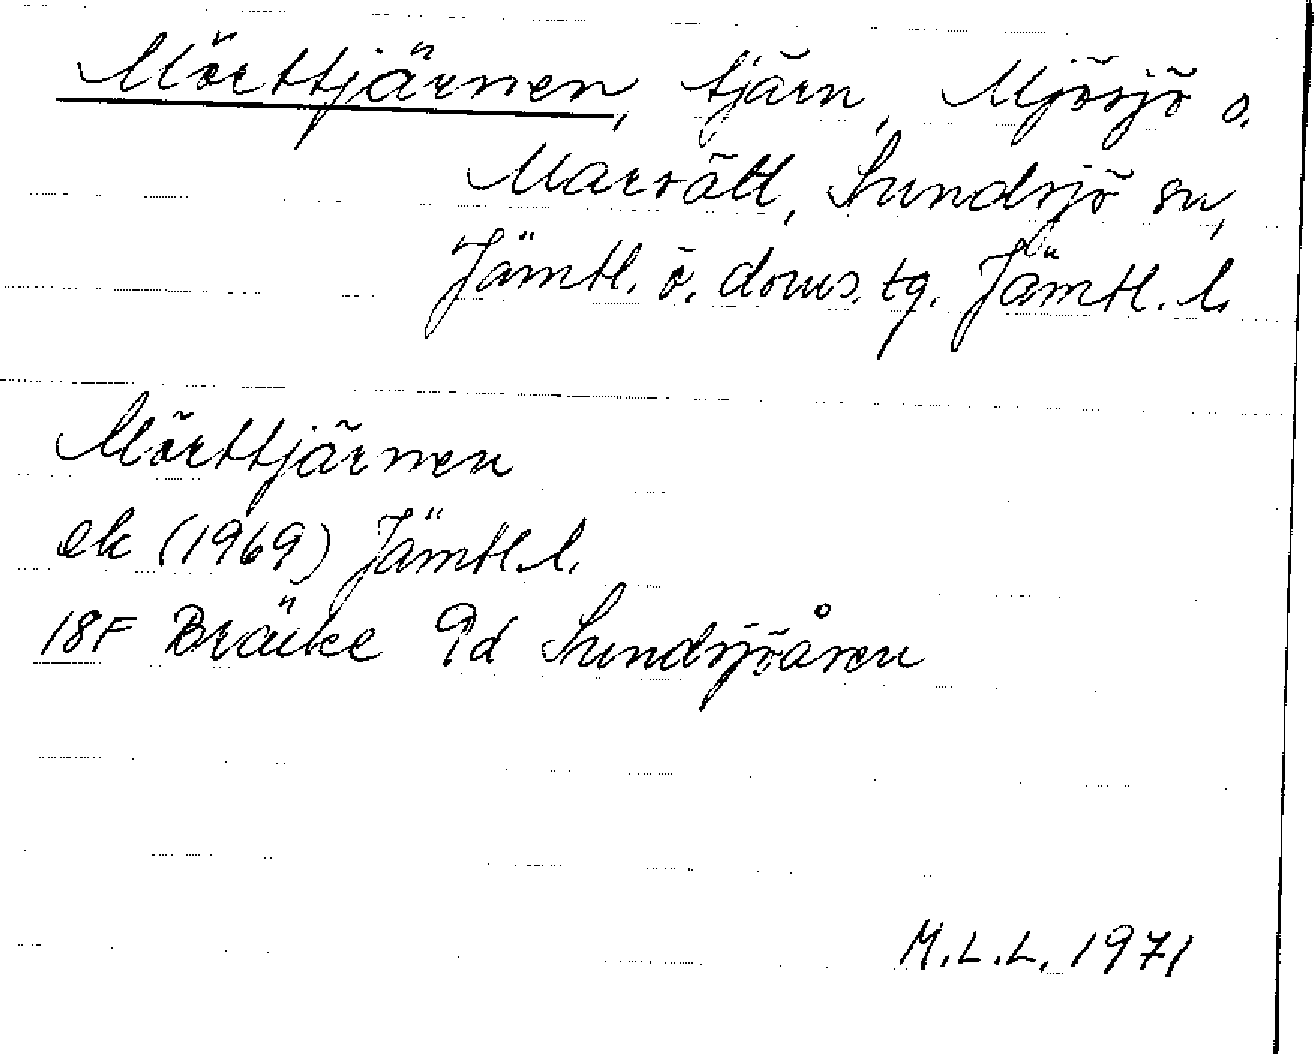 Mörttjärnen, tjärn, Mjösjö o.
Marsätt, Sundsjö sn,
Jämtl. ö. doms. tg. Jämtl. l.
Mörttjärnen
ek (1969) Jämtl. l.
18F Bräcke 9d Sundsjöåsen
M.L.L. 1971